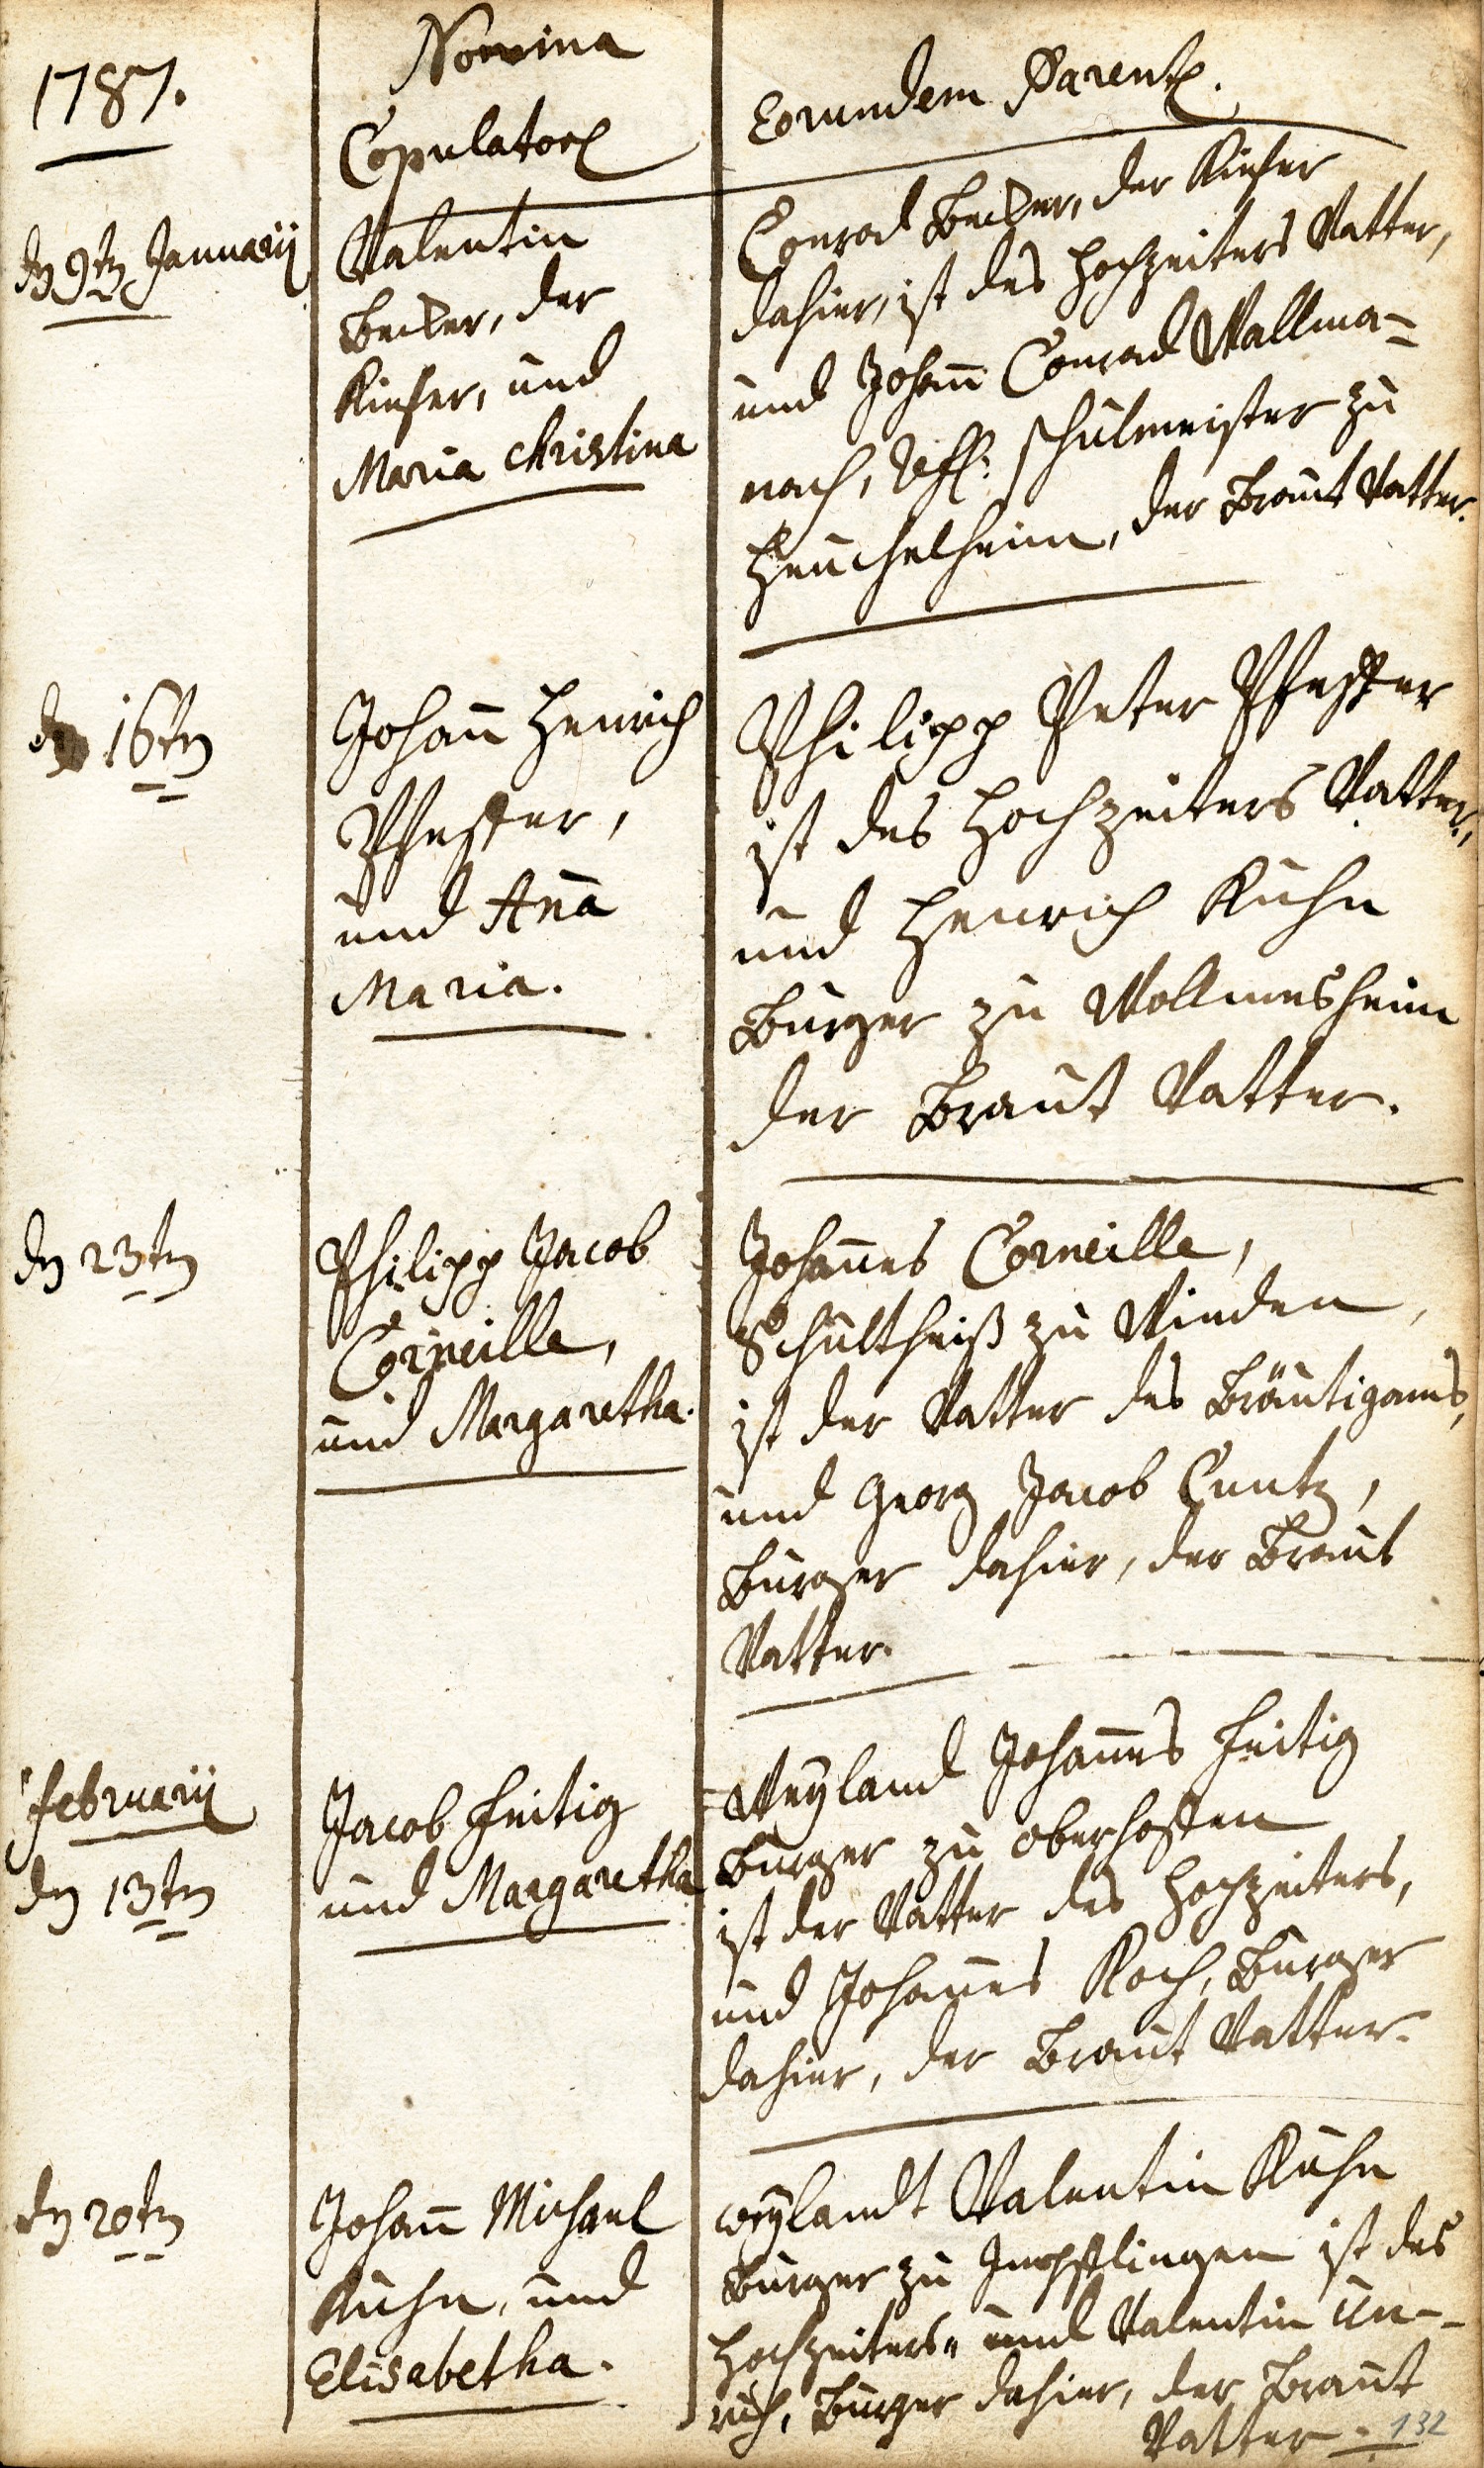 1787.
Nomina
Copulator
Eorundem Parent.
dn 9tn Januarij
Valentin
Becker, der
Kiefer, und
Maria Christina
Conrad Becker, der Kiefer
dahier, ist des Hochzeiters Vatter,
und Johañ Conrad Wallma=
nach, Ref: Schulmeister zu
Heuchelheim, der Braut Vatter.
dn 16tn
Johañ Henrich
Pfeffer,
und Aña
Maria.
Philipp Peter Pfeffer
ist des Hochzeiters Vatter,
und Henrich Kuhn
Burger zu Wollmesheim
der Braut Vatter.
dn 23tn
Philipp Jacob
Corneille,
und Margaretha.
Johañes Corneille,
Schultheiß zu Winden,
ist der Vatter des Bräutigams,
und Georg Jacob Cuntz,
Burger dahier, der Braut
Vatter.
februarij
dn 13tn
Jacob Feitig
und Margaretha
Weyland Johañes Feitig
Burger zu Oberhoffen
ist der Vatter des Hochzeiters,
und Johañes Koch, Burger
dahier, der Braut Vatter.
dn 20tn
Johañ Michael
Kuhn, und
Elisabetha.
weylandt Valentin Kuhn
Burger zu Impflingen ist des
Hochzeiters„ und Valentin Un-
rich, Burger dahier, der Braut
Vatter.
132